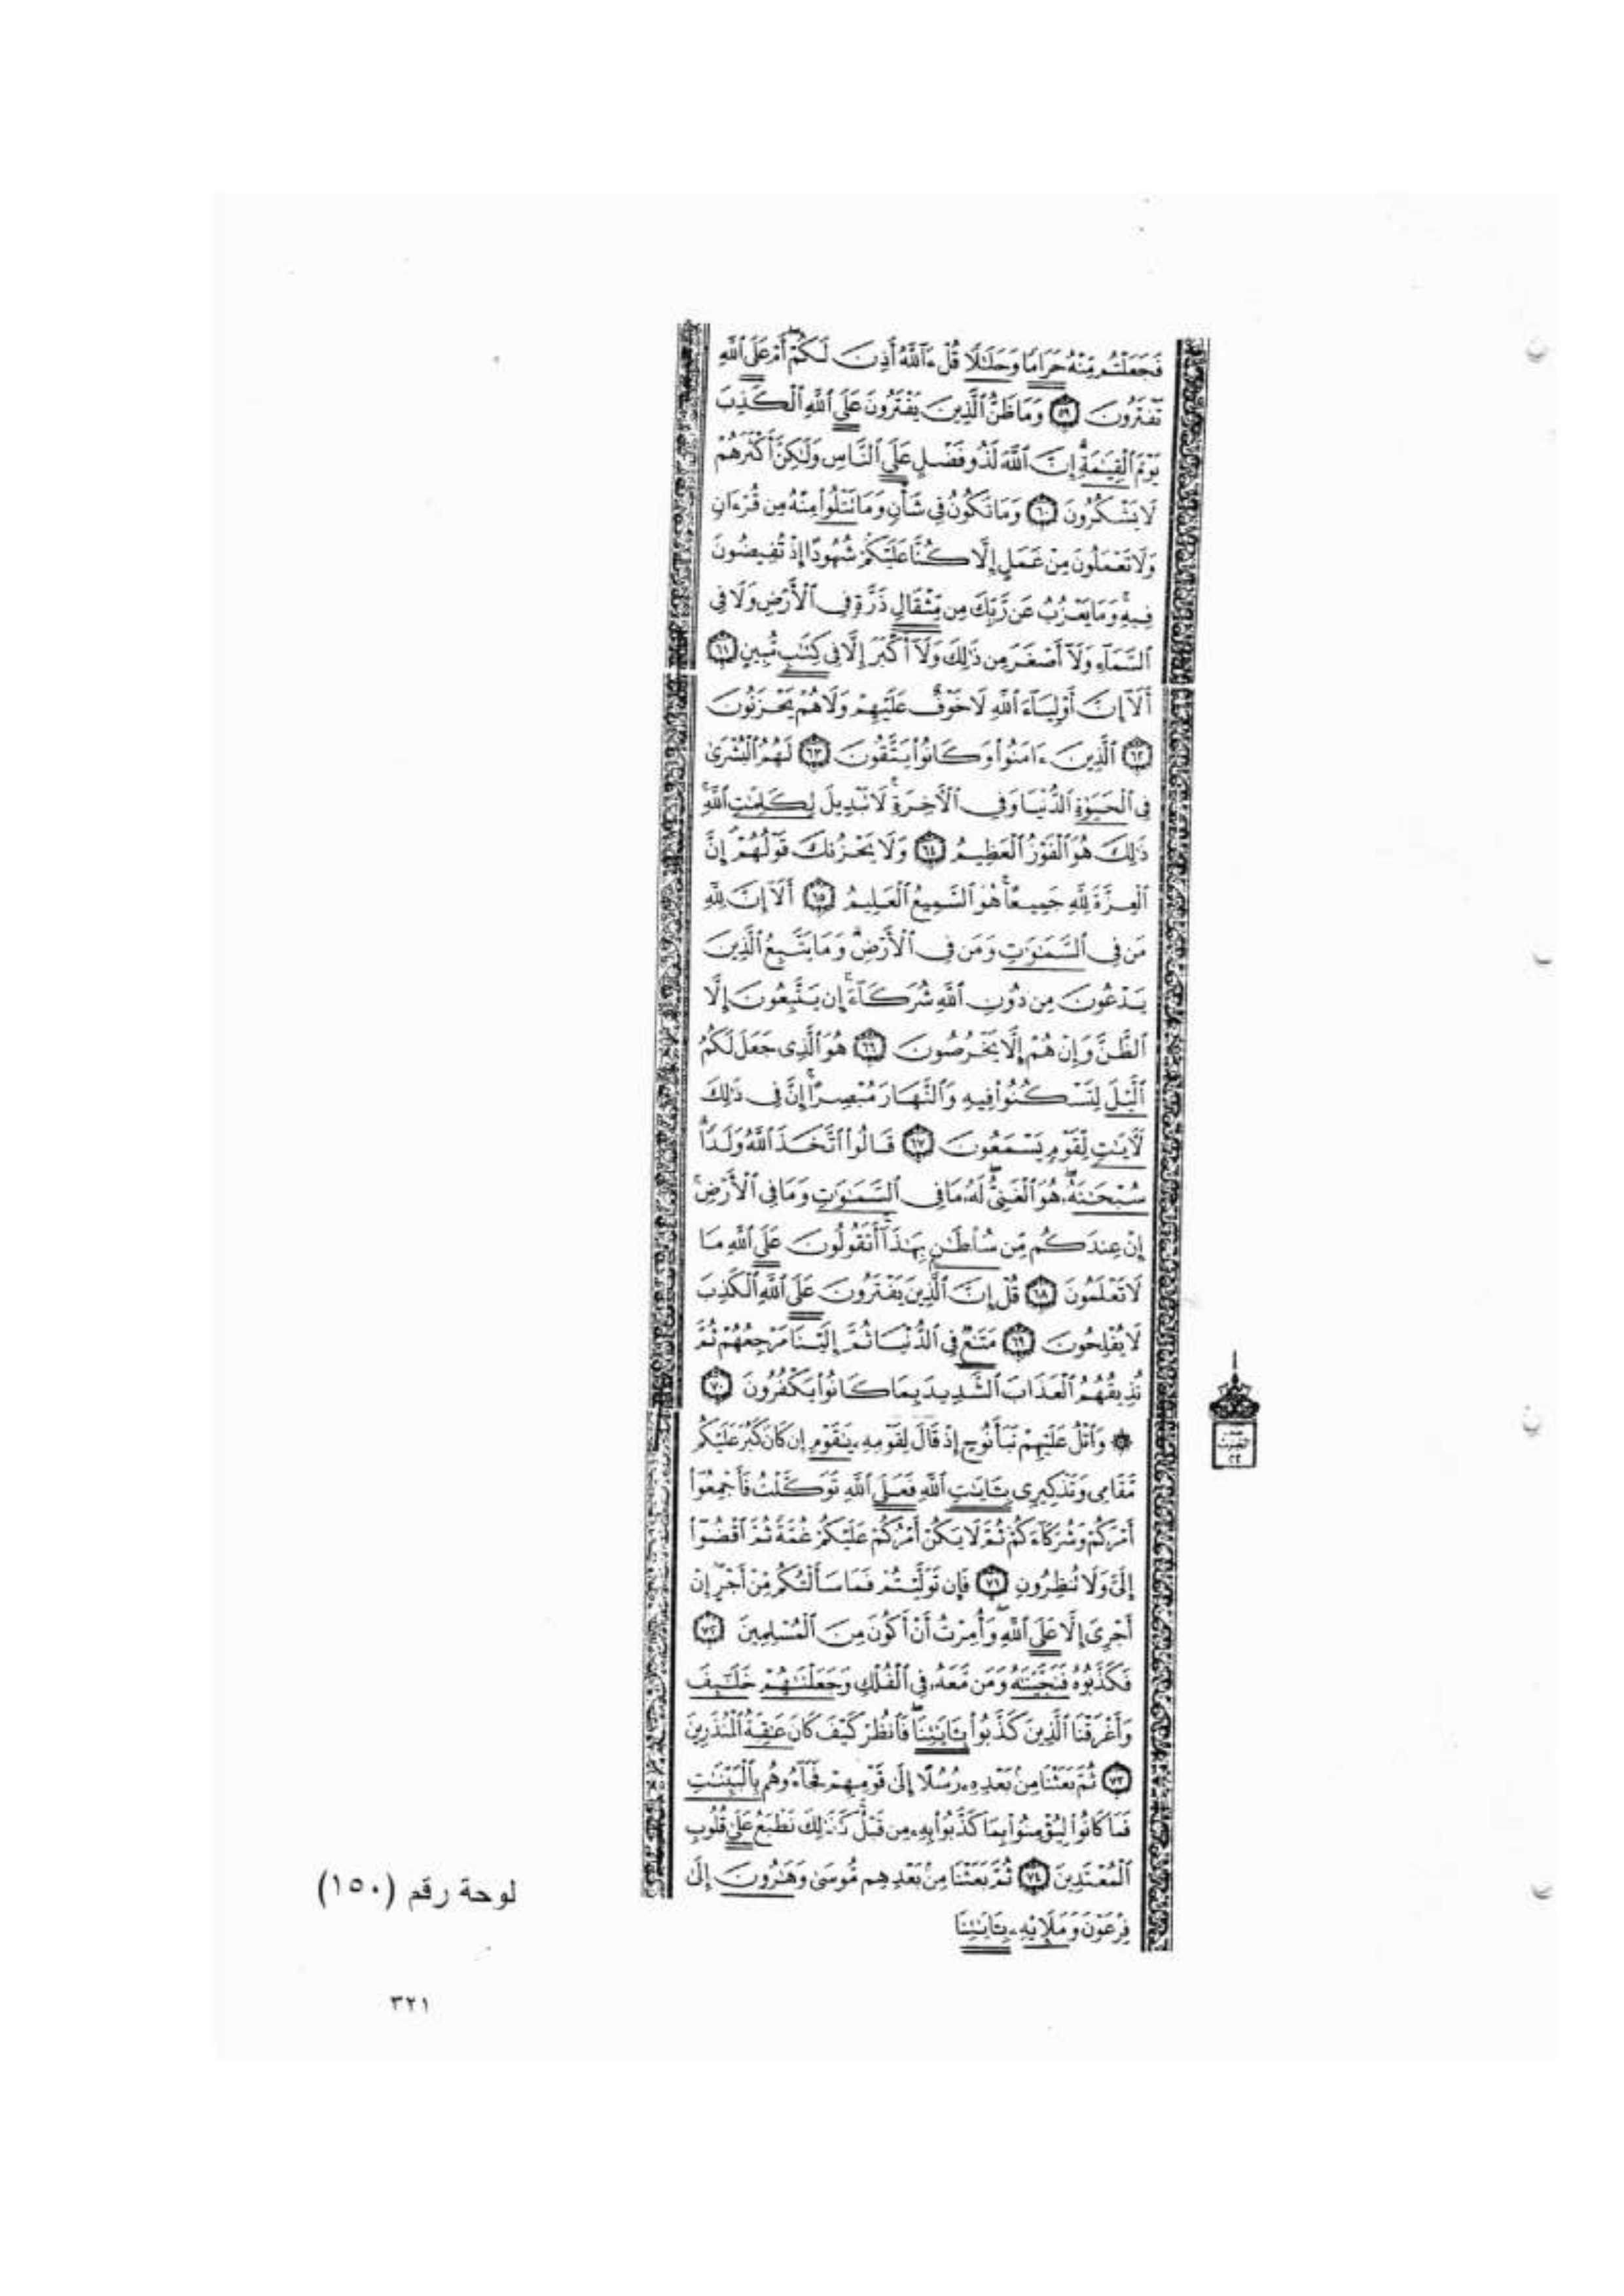 فَجَعَلْتُم مِّنْهُ حَرَامًا وَحَلَٰلًا قُلْ ءَآللَّهُ أَذِنَ لَكُمْ ۖ أَمْ عَلَى ٱللَّهِ
تَفْتَرُونَ ٥٩ وَمَا ظَنُّ ٱلَّذِينَ يَفْتَرُونَ عَلَى ٱللَّهِ ٱلْكَذِبَ
يَوْمَ ٱلْقِيَٰمَةِ ۗ إِنَّ ٱللَّهَ لَذُو فَضْلٍ عَلَى ٱلنَّاسِ وَلَٰكِنَّ أَكْثَرَهُمْ
لَا يَشْكُرُونَ ٦٠ وَمَا تَكُونُ فِى شَأْنٍ وَمَا تَتْلُوا۟ مِنْهُ مِن قُرْءَانٍ
وَلَا تَعْمَلُونَ مِنْ عَمَلٍ إِلَّا كُنَّا عَلَيْكُمْ شُهُودًا إِذْ تُفِيضُونَ
فِيهِ ۚ وَمَا يَعْزُبُ عَن رَّبِّكَ مِن مِّثْقَالِ ذَرَّةٍ فِى ٱلْأَرْضِ وَلَا فِى
ٱلسَّمَآءِ وَلَآ أَصْغَرَ مِن ذَٰلِكَ وَلَآ أَكْبَرَ إِلَّا فِى كِتَٰبٍ مُّبِينٍ ٦١
أَلَآ إِنَّ أَوْلِيَآءَ ٱللَّهِ لَا خَوْفٌ عَلَيْهِمْ وَلَا هُمْ يَحْزَنُونَ
٦٢ ٱلَّذِينَ ءَامَنُوا۟ وَكَانُوا۟ يَتَّقُونَ ٦٣ لَهُمُ ٱلْبُشْرَىٰ
فِى ٱلْحَيَوٰةِ ٱلدُّنْيَا وَفِى ٱلْأَخِرَةِ ۚ لَا تَبْدِيلَ لِكَلِمَٰتِ ٱللَّهِ ۚ
ذَٰلِكَ هُوَ ٱلْفَوْزُ ٱلْعَظِيمُ ٦٤ وَلَا يَحْزُنكَ قَوْلُهُمْ ۘ إِنَّ
ٱلْعِزَّةَ لِلَّهِ جَمِيعًا ۚ هُوَ ٱلسَّمِيعُ ٱلْعَلِيمُ ٦٥ أَلَآ إِنَّ لِلَّهِ
مَن فِى ٱلسَّمَٰوَٰتِ وَمَن فِى ٱلْأَرْضِ ۗ وَمَا يَتَّبِعُ ٱلَّذِينَ
يَدْعُونَ مِن دُونِ ٱللَّهِ شُرَكَآءَ ۚ إِن يَتَّبِعُونَ إِلَّا
ٱلظَّنَّ وَإِنْ هُمْ إِلَّا يَخْرُصُونَ ٦٦ هُوَ ٱلَّذِى جَعَلَ لَكُمُ
ٱلَّيْلَ لِتَسْكُنُوا۟ فِيهِ وَٱلنَّهَارَ مُبْصِرًا ۚ إِنَّ فِى ذَٰلِكَ
لَأَيَٰتٍ لِّقَوْمٍ يَسْمَعُونَ ٦٧ قَالُوا۟ ٱتَّخَذَ ٱللَّهُ وَلَدًا ۗ
سُبْحَٰنَهُۥ ۖ هُوَ ٱلْغَنِىُّ ۖ لَهُۥ مَا فِى ٱلسَّمَٰوَٰتِ وَمَا فِى ٱلْأَرْضِ ۚ
إِنْ عِندَكُم مِّن سُلْطَٰنٍۭ بِهَٰذَآ ۚ أَتَقُولُونَ عَلَى ٱللَّهِ مَا
لَا تَعْلَمُونَ ٦٨ قُلْ إِنَّ ٱلَّذِينَ يَفْتَرُونَ عَلَى ٱللَّهِ ٱلْكَذِبَ
لَا يُفْلِحُونَ ٦٩ مَتَٰعٌ فِى ٱلدُّنْيَا ثُمَّ إِلَيْنَا مَرْجِعُهُمْ ثُمَّ
نُذِيقُهُمُ ٱلْعَذَابَ ٱلشَّدِيدَ بِمَا كَانُوا۟ يَكْفُرُونَ ٧٠
۞ وَٱتْلُ عَلَيْهِمْ نَبَأَ نُوحٍ إِذْ قَالَ لِقَوْمِهِۦ يَٰقَوْمِ إِن كَانَ كَبُرَ عَلَيْكُم
مَّقَامِى وَتَذْكِيرِى بِـَٔايَٰتِ ٱللَّهِ فَعَلَى ٱللَّهِ تَوَكَّلْتُ فَأَجْمِعُوٓا۟
أَمْرَكُمْ وَشُرَكَآءَكُمْ ثُمَّ لَا يَكُنْ أَمْرُكُمْ عَلَيْكُمْ غُمَّةً ثُمَّ ٱقْضُوٓا۟
إِلَىَّ وَلَا تُنظِرُونِ ٧١ فَإِن تَوَلَّيْتُمْ فَمَا سَأَلْتُكُم مِّنْ أَجْرٍ ۖ إِنْ
أَجْرِىَ إِلَّا عَلَى ٱللَّهِ ۖ وَأُمِرْتُ أَنْ أَكُونَ مِنَ ٱلْمُسْلِمِينَ ٧٢
فَكَذَّبُوهُ فَنَجَّيْنَٰهُ وَمَن مَّعَهُۥ فِى ٱلْفُلْكِ وَجَعَلْنَٰهُمْ خَلَٰٓئِفَ
وَأَغْرَقْنَا ٱلَّذِينَ كَذَّبُوا۟ بِـَٔايَٰتِنَا ۖ فَٱنظُرْ كَيْفَ كَانَ عَٰقِبَةُ ٱلْمُنذَرِينَ
٧٣ ثُمَّ بَعَثْنَا مِنۢ بَعْدِهِۦ رُسُلًا إِلَىٰ قَوْمِهِمْ فَجَآءُوهُم بِٱلْبَيِّنَٰتِ
فَمَا كَانُوا۟ لِيُؤْمِنُوا۟ بِمَا كَذَّبُوا۟ بِهِۦ مِن قَبْلُ ۚ كَذَٰلِكَ نَطْبَعُ عَلَىٰ قُلُوبِ
ٱلْمُعْتَدِينَ ٧٤ ثُمَّ بَعَثْنَا مِنۢ بَعْدِهِم مُّوسَىٰ وَهَٰرُونَ إِلَىٰ
فِرْعَوْنَ وَمَلَإِي۟هِۦ بِـَٔايَٰتِنَا
لوحة رقم (١٥٠)
٣٢١